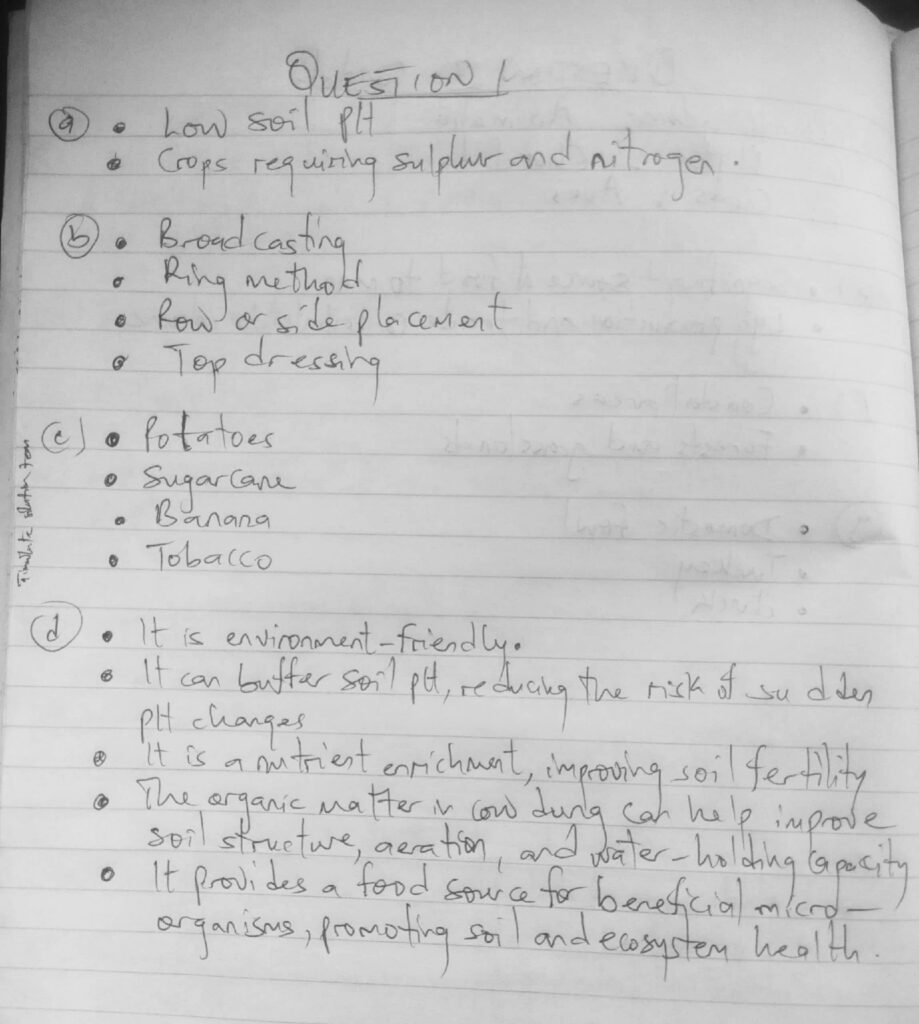 QUESTION 1
(a) • Low soil pH
• Crops requiring sulphur and nitrogen.
(b) • Broadcasting
• Ring method
• Row or side placement
• Top dressing
(c) • Potatoes
• Sugarcane
• Banana
• Tobacco
(d) • It is environment-friendly.
• It can buffer soil pH, reducing the risk of sudden
pH changes
• It is a nutrient enrichment, improving soil fertility
• The organic matter in cow dung can help improve
soil structure, aeration, and water-holding capacity
• It provides a food source for beneficial micro-
organisms, promoting soil and ecosystem health.